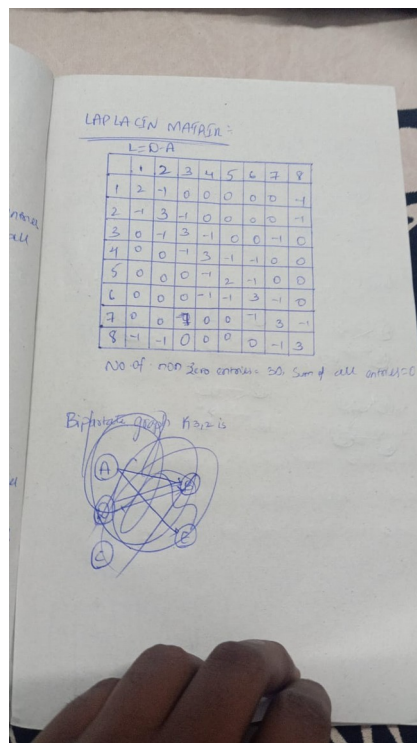 LAPLACIN MATRIX:
L=D-A
1 2 3 4 5 6 7 8
1 2 -1 0 0 0 0 0 -1
2 -1 3 -1 0 0 0 0 -1
3 0 -1 3 -1 0 0 -1 0
4 0 0 -1 3 -1 -1 0 0
5 0 0 0 -1 2 -1 0 0
6 0 0 0 -1 -1 3 -1 0
7 0 0 0 0 -1 3 -1
8 -1 -1 0 0 0 0 -1 3
No of non zero entries= 30, Sum of all entries=0
Bipartate graph K3,2 is
A
B
C
E
all